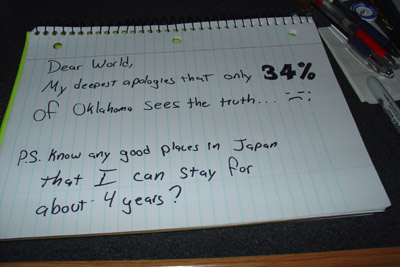 Dear World,
My deepest apologies that only 34%
of Oklahoma sees the truth...
P.S. Know any good places in Japan
that I can stay for
about 4 years?